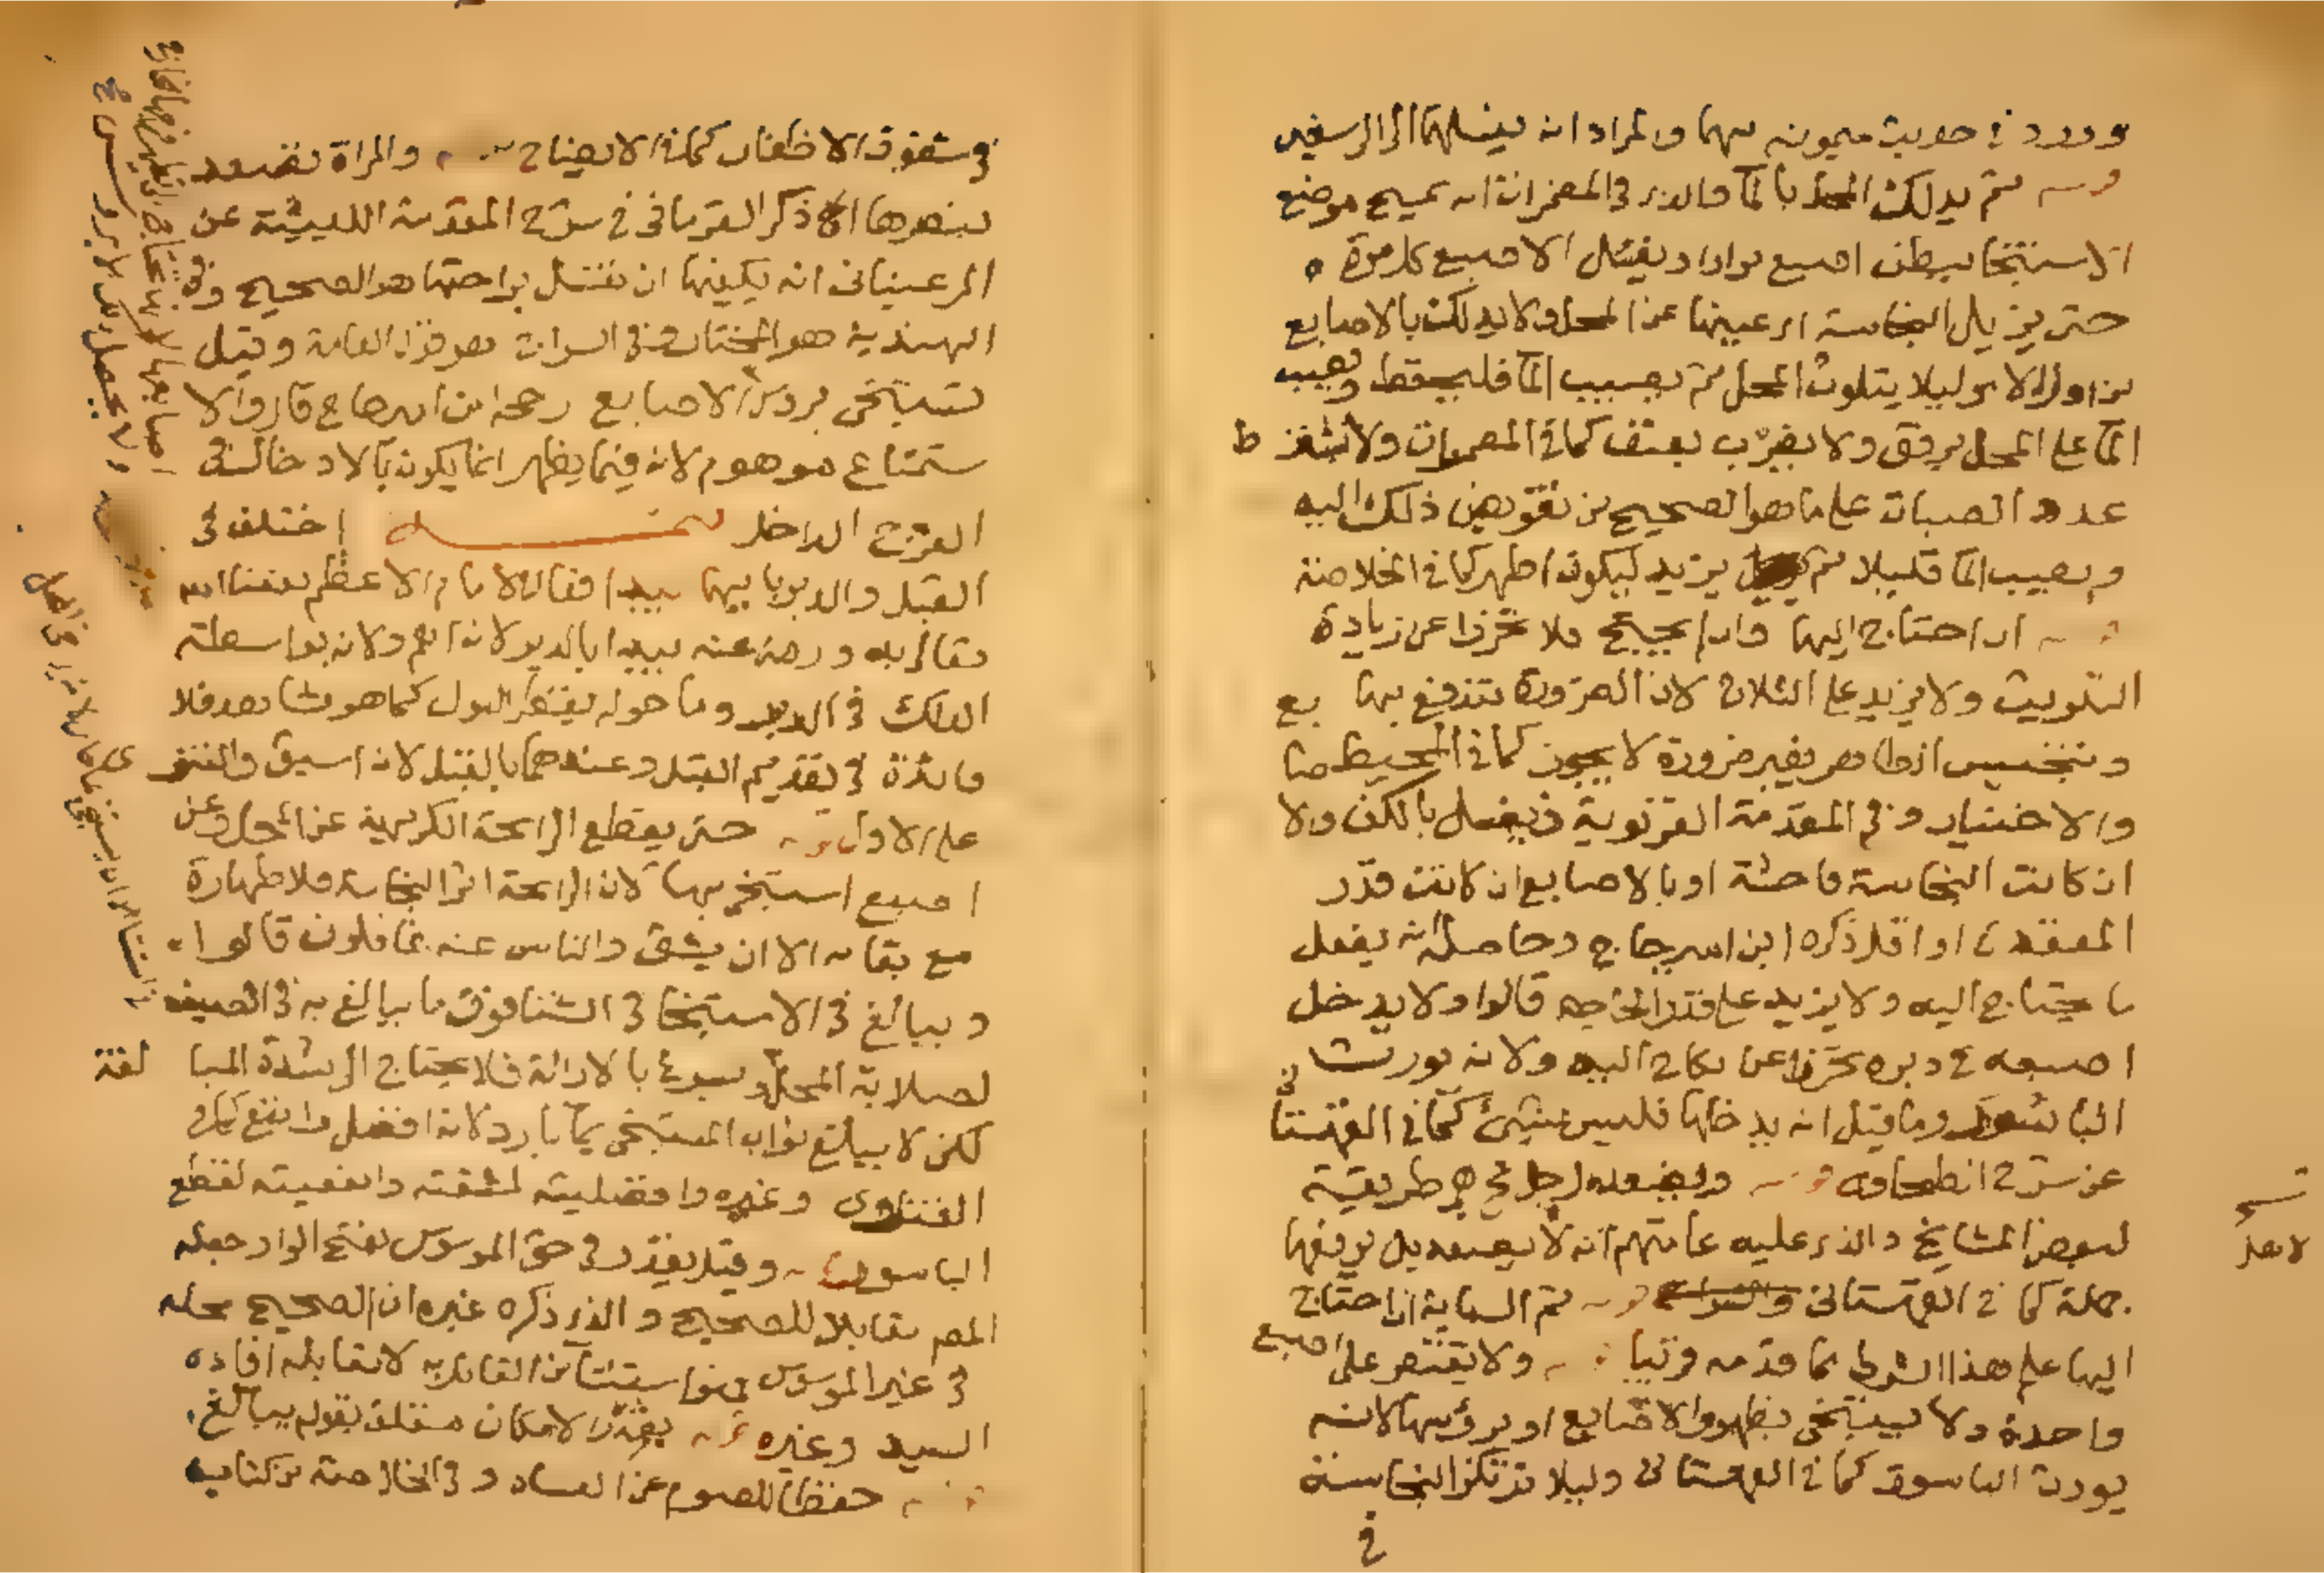 وورد في حديث ميمونة بهما والمراد انه يغسلهما الى الرسغين
ثم يدلك المحل بالماء قال في المضمرات انه يمسح موضع
الاستنجا ببطن اصبع مرارا ويغسل الاصبع كل مرة
حتى يزيل النجاسة اي عينها عن المحل ولا يدلك بالاصابع
من اول الامر ليلا يتلوث المحل ثم يصب الما قليل فقط ويصب
الما على المحل برفق ولا يضرب بعنف كما في المضمرات ولا يشترط
عدد الصبات على ما هو الصحيح من تفويض ذلك اليه
ويصب الما قليلا ثم يزيد ليكون اطهر كما في الخلاصة
ان احتاج اليها فان لم يحتج فلا تحرزا عن زيادة
التلويث ولا يزيد على الثلاث لان الضرورة تندفع بها
وتنجيس الطاهر بغير ضرورة لا يجوز كما في المحيط
والاختيار وفي المقدمة الغزنوية ويغسل بالكف
ان كانت النجاسة فاحشة او بالاصابع ان كانت قدر
المقعد او اقل ذكره ابن امير حاج وحاصله انه يفعل
ما يحتاج اليه ولا يزيد على قدر الحاجة قالوا ولا يدخل
اصبعه في دبره تحرزا عن نكاح اليد ولانه يورث
الباسور وما قيل انه يدخلها فليس بشيئ كما في القهستاني
عن شرح الطحاوي ويصعد الرجل هي طريقة
لبعض المشايخ والذي عليه عامتهم انه لا يصعد بل يرفعها
جملة كما في القهستاني ثم السبابة ان احتاج
اليها على هذا الشرط كما قدمه قريبا ولا يقتصر على اصبع
واحدة ولا يستنجي بظهور الاصابع او برؤسها لانه
يورث الباسور كما في القهستاني وليلا ترتكز النجاسة
في
لا تعد
في شقوق الاظفار كما في الايضاح والمراة تصعد
بنصرها الخ ذكر القرماني في شرح المقدمة الليثية عن
المرغيناني انه يكفيها ان تغسل براحتها هو الصحيح وفي
الهندية هو المختار وفي السراج هو قول العامة وقيل
تستنجي بروس الاصابع رجحه ابن امير حاج قال والا
ستمتاع موهوم لانه فيما يظهر انما يكون بالادخال في
الفرج الداخل تتمة اختلف في
القبل والدبر بايهما يبدا فقال الامام الاعظم نفعنا الله
تعالى به ورضي عنه يبدا بالدبر لانه اهم ولانه بواسطة
الدلك في الدبر وما حوله يقطر البول كما هو مشاهد فلا
فائدة في تقديم القبل وعندهما بالقبل لانه اسبق والفتوى
على الاول حتى يقطع الرائحة الكريهة عن المحل وعن
اصبع استنجى بها لان الرائحة اثر النجاسة فلا طهارة
مع بقائه الا ان يشق والناس عنه غافلون قالوا
ويبالغ في الاستنجا في الشتا فوق ما يبالغ به في الصيف
لصلابة المحل وسرعة بالازالة فلا يحتاج الى شدة المبا لغة
لكن لا يبلغ ثواب المستنجي بما بارد لانه افضل وانفع كما في
الفتاوى وغيره وافضليته لمشقته وانفعيته لقطع
الباسور وقيل يقدر في حق الموسوس بفتح الواو جعله
المص مقابلا للصحيح والذي ذكره غيره ان الصحيح محله
في غير الموسوس القائل به لا مقابلة افاده
السيد وغيره بقدر الامكان متعلق بقوله يبالغ
حفظا للصوم عن الفساد وفي الخلاصة من كتاب